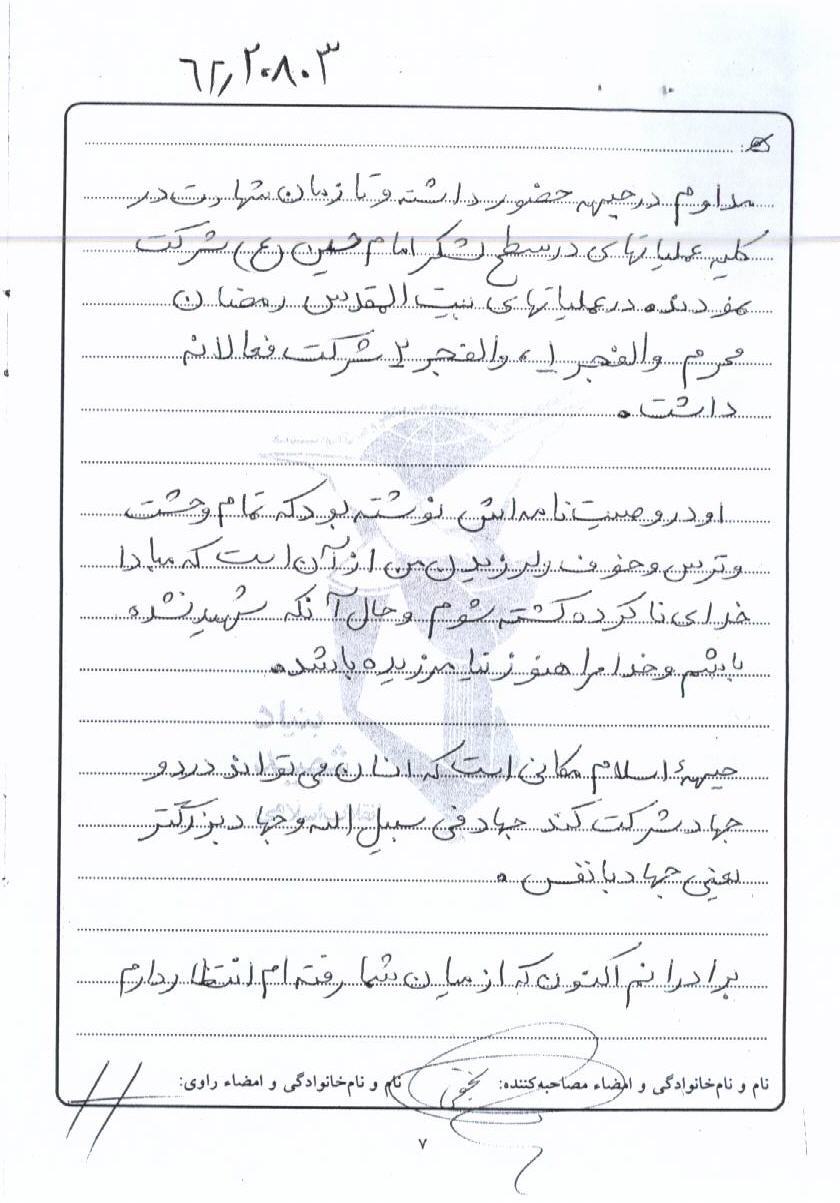 ۶۲٫۲۰۸۰۳
مداوم در جبهه حضور داشته و تا زمان شهادت در
کلیه عملیاتهای در سطح لشکر امام حسین (ع) شرکت
نموده در عملیاتهای بیت المقدس رمضان
محرم والفجر ۱، والفجر ۲ شرکت فعالانه
داشت.
او در وصیت نامه اش نوشته بود که تمام وحشت
و ترس و خوف و لرزیدن من از آن است که مبادا
خدای ناکرده کشته شوم و حال آنکه شهید نشده
باشم و خدا مرا هنوز نیامرزیده باشد.
جبههٔ اسلام مکانی است که انسان می تواند در دو
جهاد شرکت کند جهاد فی سبیل الله و جهاد بزرگتر
یعنی جهاد با نفس.
برادرانم اکنون که از میان شما رفته ام انتظار دارم
نام و نام‌خانوادگی و امضاء مصاحبه‌کننده: نام و نام‌خانوادگی و امضاء راوی:
۷